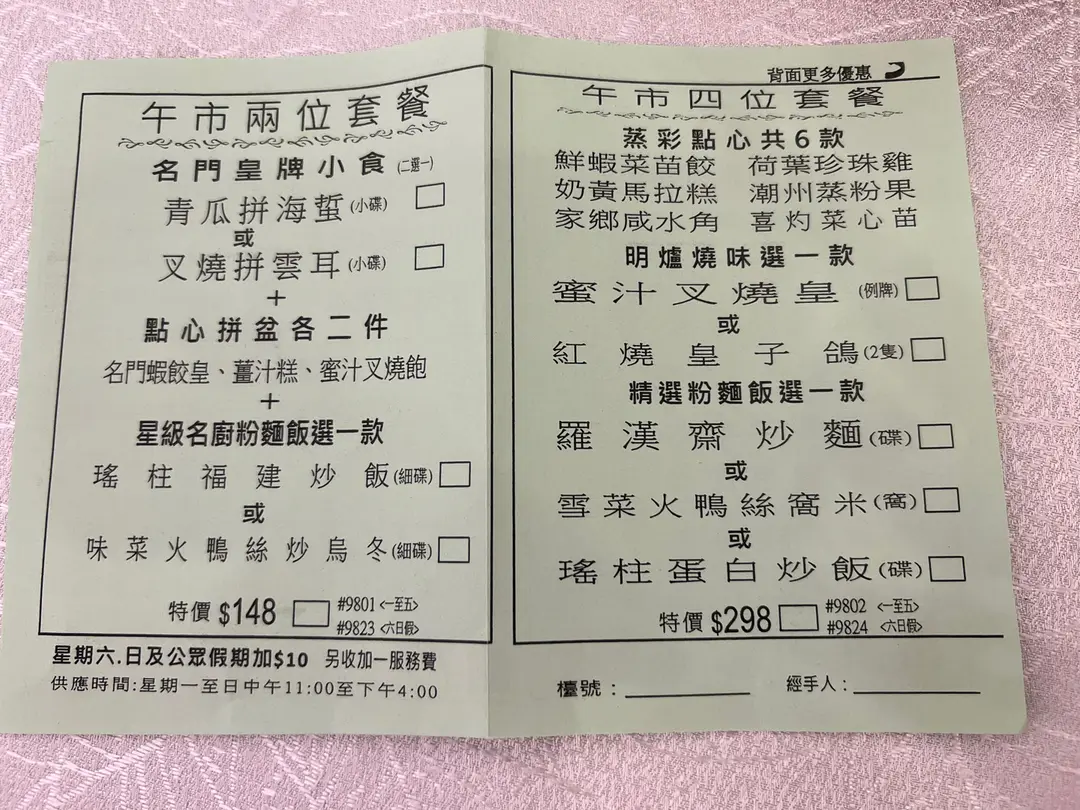 午市兩位套餐
名門皇牌小食(二選一)
青瓜拼海蜇(小碟)
或
叉燒拼雲耳(小碟)
+
點心拼盆各二件
名門蝦餃皇、薑汁糕、蜜汁叉燒飽
+
星級名廚粉麵飯選一款
瑤柱福建炒飯(細碟)
或
味菜火鴨絲炒烏冬(細碟)
特價 $148 #9801 <一至五>
#9823 <六日假>
星期六.日及公眾假期加$10 另收加一服務費
供應時間:星期一至日中午11:00至下午4:00
背面更多優惠
午市四位套餐
蒸彩點心共6款
鮮蝦菜苗餃 荷葉珍珠雞
奶黃馬拉糕 潮州蒸粉果
家鄉咸水角 喜灼菜心苗
明爐燒味選一款
蜜汁叉燒皇(例牌)
或
紅燒皇子鴿(2隻)
精選粉麵飯選一款
羅漢齋炒麵(碟)
或
雪菜火鴨絲窩米(窩)
或
瑤柱蛋白炒飯(碟)
特價 $298 #9802 <一至五>
#9824 <六日假>
檯號：
經手人：